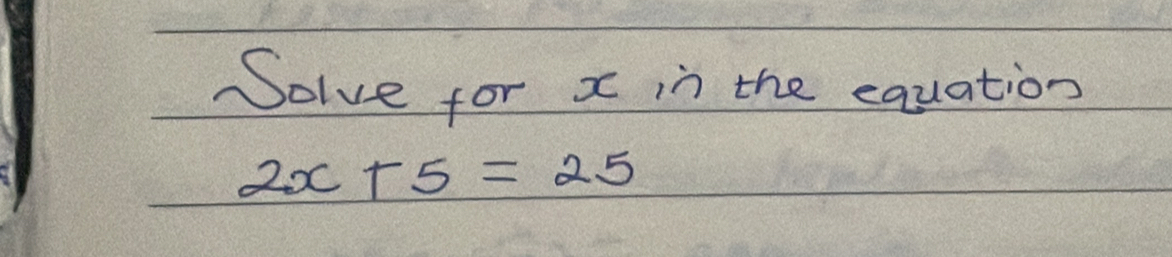 Solve for x in the equation
2x + 5 = 25